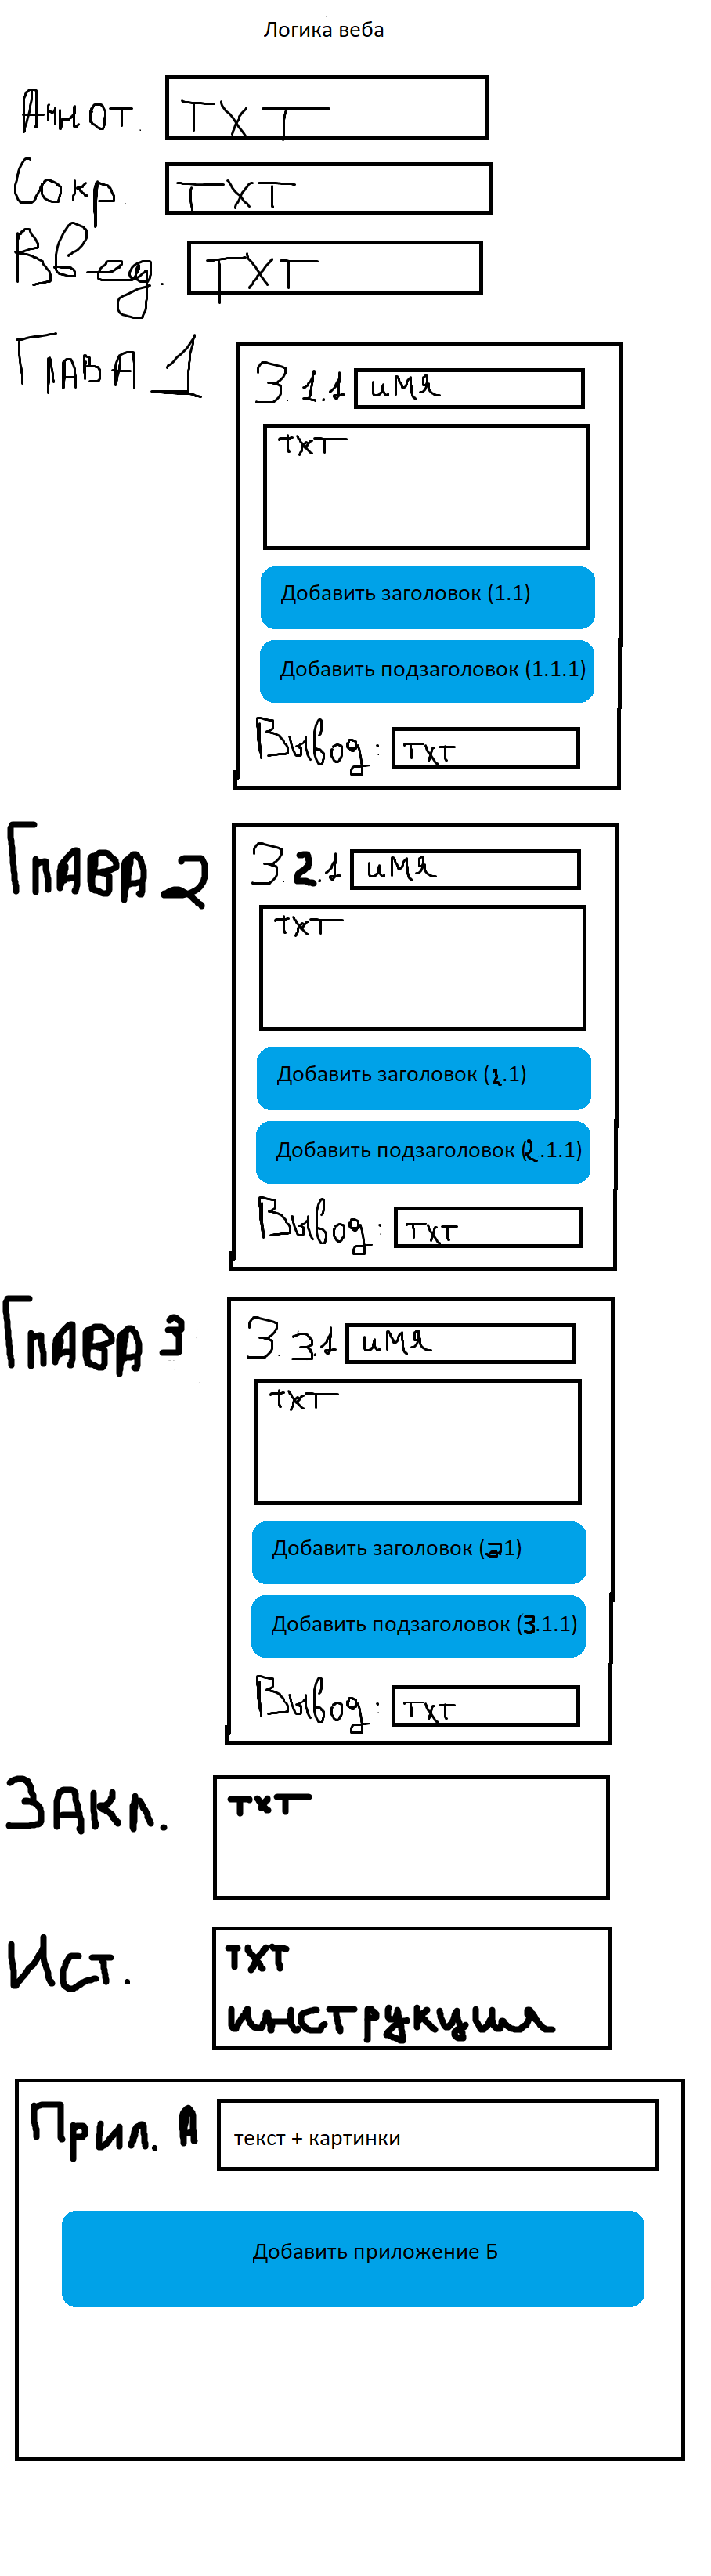 Логика веба
Аннот. ТХТ
Сокр. ТХТ
Введ. ТХТ
Глава 1
З.1.1 имя
тхт
Добавить заголовок (1.1)
Добавить подзаголовок (1.1.1)
Вывод: тхт
Глава 2
З.2.1 имя
тхт
Добавить заголовок (2.1)
Добавить подзаголовок (2.1.1)
Вывод: тхт
Глава 3
З.3.1 имя
тхт
Добавить заголовок (3.1)
Добавить подзаголовок (3.1.1)
Вывод: тхт
Закл. тхт
Ист. тхт
инструкция
Прил. А текст + картинки
Добавить приложение Б